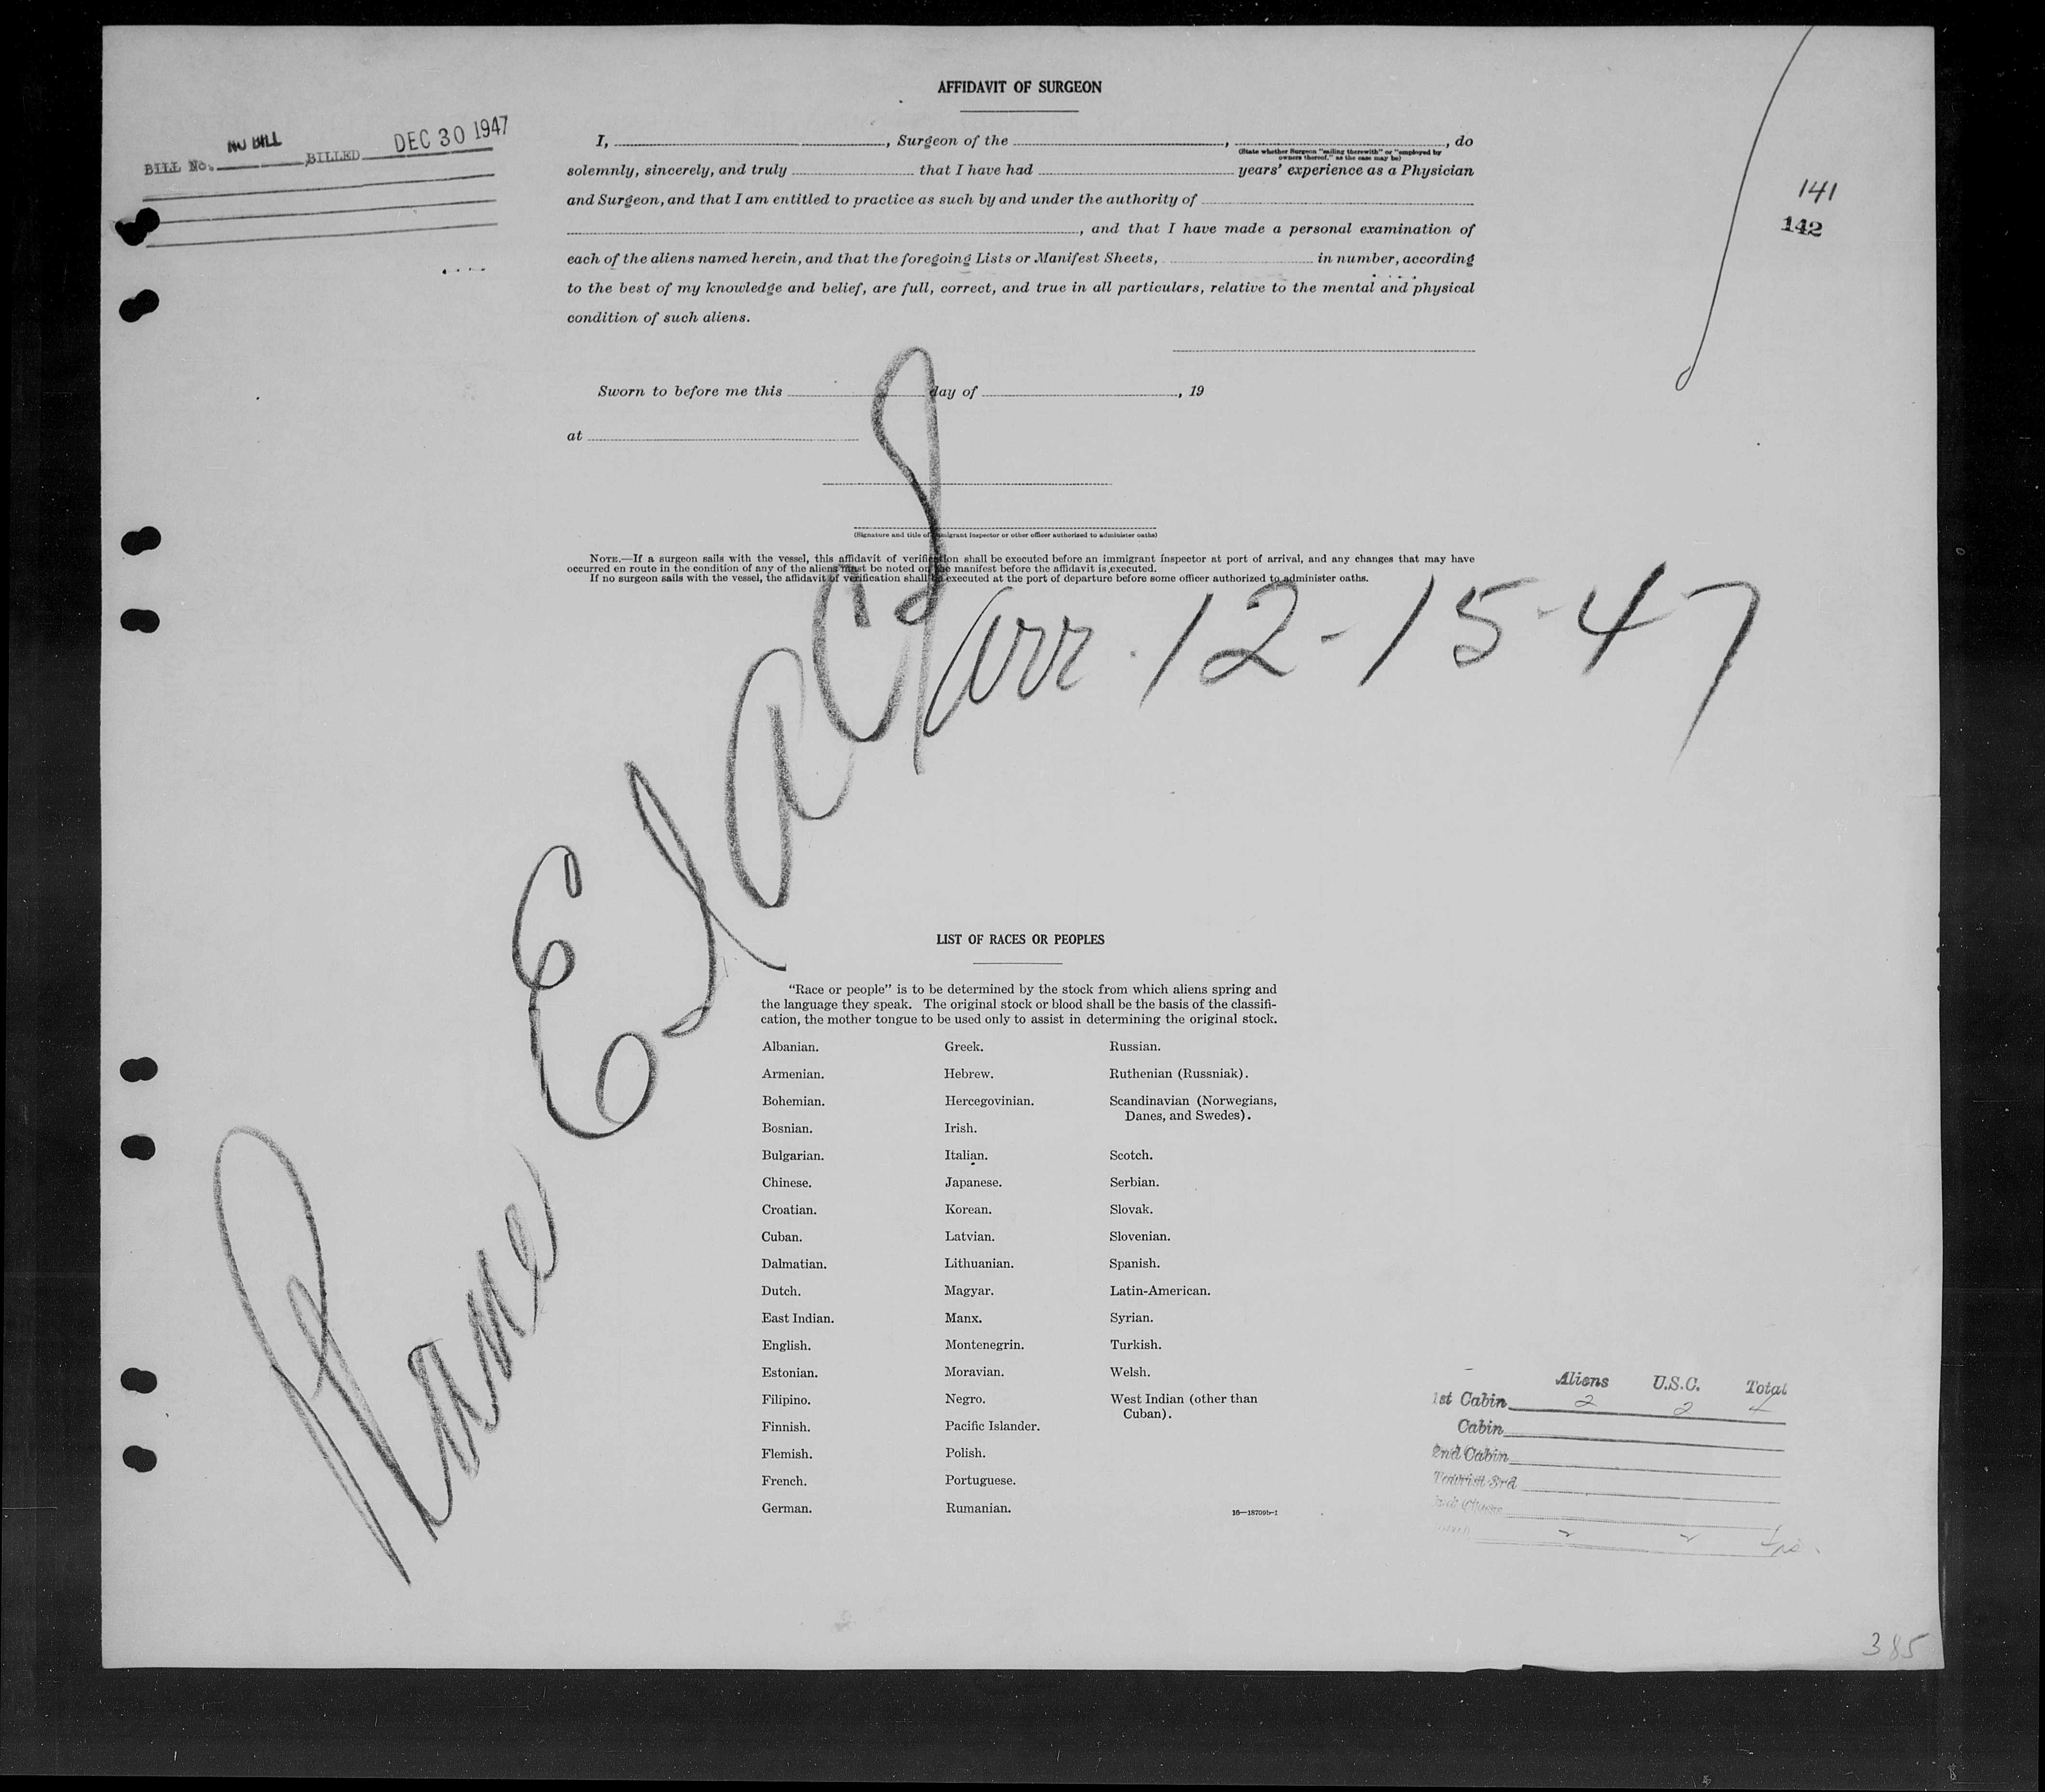 AFFIDAVIT OF SURGEON
BILL No. NO BILL BILLED DEC 30 1947
I, , Surgeon of the , , do
(State whether Surgeon "sailing therewith" or "employed by owners thereof," as the case may be)
solemnly, sincerely, and truly that I have had years' experience as a Physician
and Surgeon, and that I am entitled to practice as such by and under the authority of
, and that I have made a personal examination of
each of the aliens named herein, and that the foregoing Lists or Manifest Sheets, in number, according
to the best of my knowledge and belief, are full, correct, and true in all particulars, relative to the mental and physical
condition of such aliens.
141
142
Sworn to before me this day of , 19
at
(Signature and title of immigrant inspector or other officer authorized to administer oaths)
NOTE.—If a surgeon sails with the vessel, this affidavit of verification shall be executed before an immigrant inspector at port of arrival, and any changes that may have
occurred en route in the condition of any of the aliens must be noted on the manifest before the affidavit is executed.
If no surgeon sails with the vessel, the affidavit of verification shall be executed at the port of departure before some officer authorized to administer oaths.
Plane
arr. 12-15-47
LIST OF RACES OR PEOPLES
"Race or people" is to be determined by the stock from which aliens spring and
the language they speak. The original stock or blood shall be the basis of the classifi-
cation, the mother tongue to be used only to assist in determining the original stock.
Albanian. Greek. Russian.
Armenian. Hebrew. Ruthenian (Russniak).
Bohemian. Hercegovinian. Scandinavian (Norwegians,
Danes, and Swedes).
Bosnian. Irish.
Bulgarian. Italian. Scotch.
Chinese. Japanese. Serbian.
Croatian. Korean. Slovak.
Cuban. Latvian. Slovenian.
Dalmatian. Lithuanian. Spanish.
Dutch. Magyar. Latin-American.
East Indian. Manx. Syrian.
English. Montenegrin. Turkish.
Estonian. Moravian. Welsh.
Filipino. Negro. West Indian (other than
Cuban).
Finnish. Pacific Islander.
Flemish. Polish.
French. Portuguese.
German. Rumanian.
16—18709b-1
Aliens U.S.C. Total
1st Cabin 2 2 4
Cabin
2nd Cabin
Tourist 3rd
2 2
385